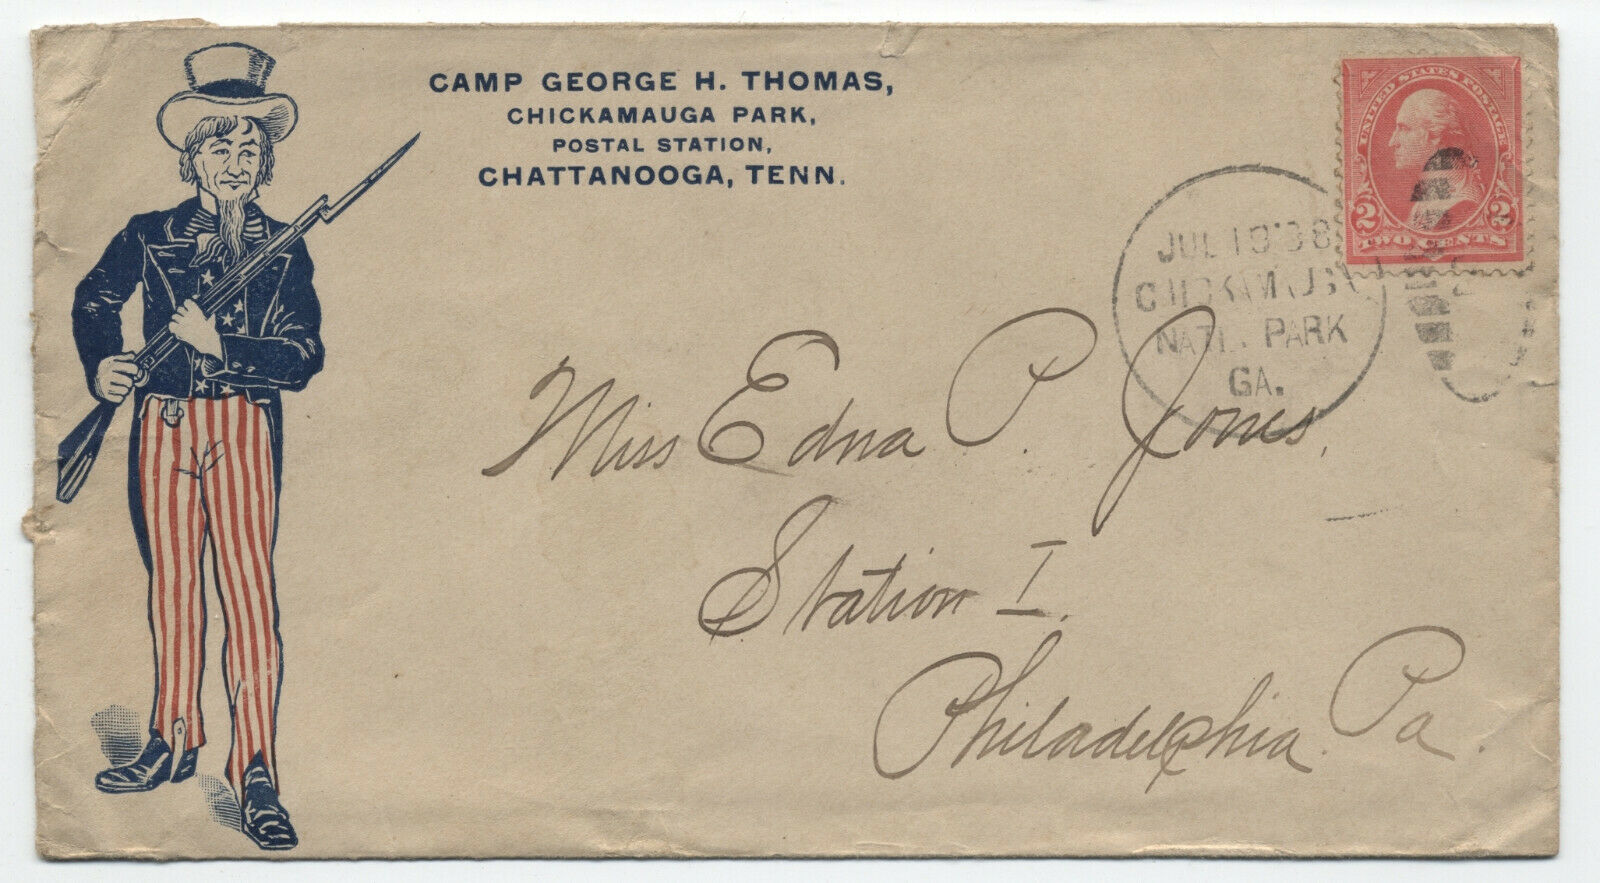 CAMP GEORGE H. THOMAS,
CHICKAMAUGA PARK,
POSTAL STATION,
CHATTANOOGA, TENN.
UNITED STATES POSTAGE
2 2
TWO CENTS
JUL
NAT'L PARK
GA.
Miss Edna P. Jones,
Station I.
Philadelphia Pa.